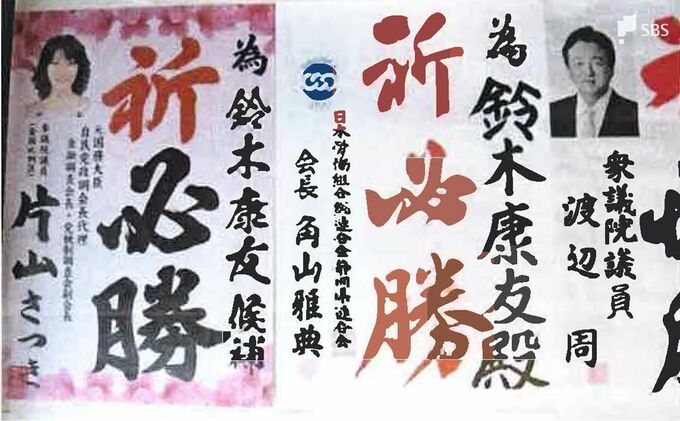 SBS
衆議院議員
渡辺 周
為 鈴木康友殿
祈必勝
日本労働組合総連合会静岡県連合会
会長 角山雅典
為 鈴木康友候補
祈必勝
元国務大臣
自民党政調会長代理
参議院議員
(全国比例区)
片山さつき